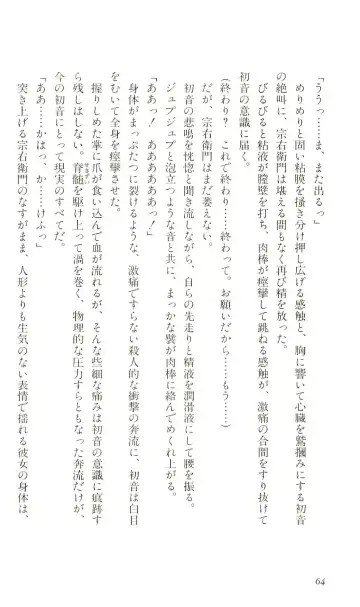 「ううっ……ま、また出るっ」
めりめりと固い粘膜を掻き分け押し広げる感触と、胸に響いて心臓を鷲摑みにする初音
の絶叫に、宗右衛門は堪える間もなく再び精を放った。
びるびると粘液が膣壁を打ち、肉棒が痙攣して跳ねる感触が、激痛の合間をすり抜けて
初音の意識に届く。
(終わり? これで終わり……終わって。お願いだから……もう……)
だが、宗右衛門はまだ萎えない。
初音の悲鳴を恍惚と聞き流しながら、自らの先走りと精液を潤滑液にして腰を振る。
ジュプジュプと泡立つような音と共に、まっかな襞が肉棒に絡んでめくれ上がる。
「ああっ! ああああああっ!」
身体がまっぷたつに裂けるような、激痛ですらない殺人的な衝撃の奔流に、初音は白目
をむいて全身を痙攣させた。
握りしめた掌に爪が食い込んで血が流れるが、そんな些細な痛みは初音の意識に痕跡す
ら残しはしない。脊髄を駆け上って渦を巻く、物理的な圧力すらともなった奔流だけが、
今の初音にとって現実のすべてだ。
「ああ……かはっ、か……けふっ」
突き上げる宗右衛門のなすがまま、人形よりも生気のない表情で揺れる彼女の身体は、
64